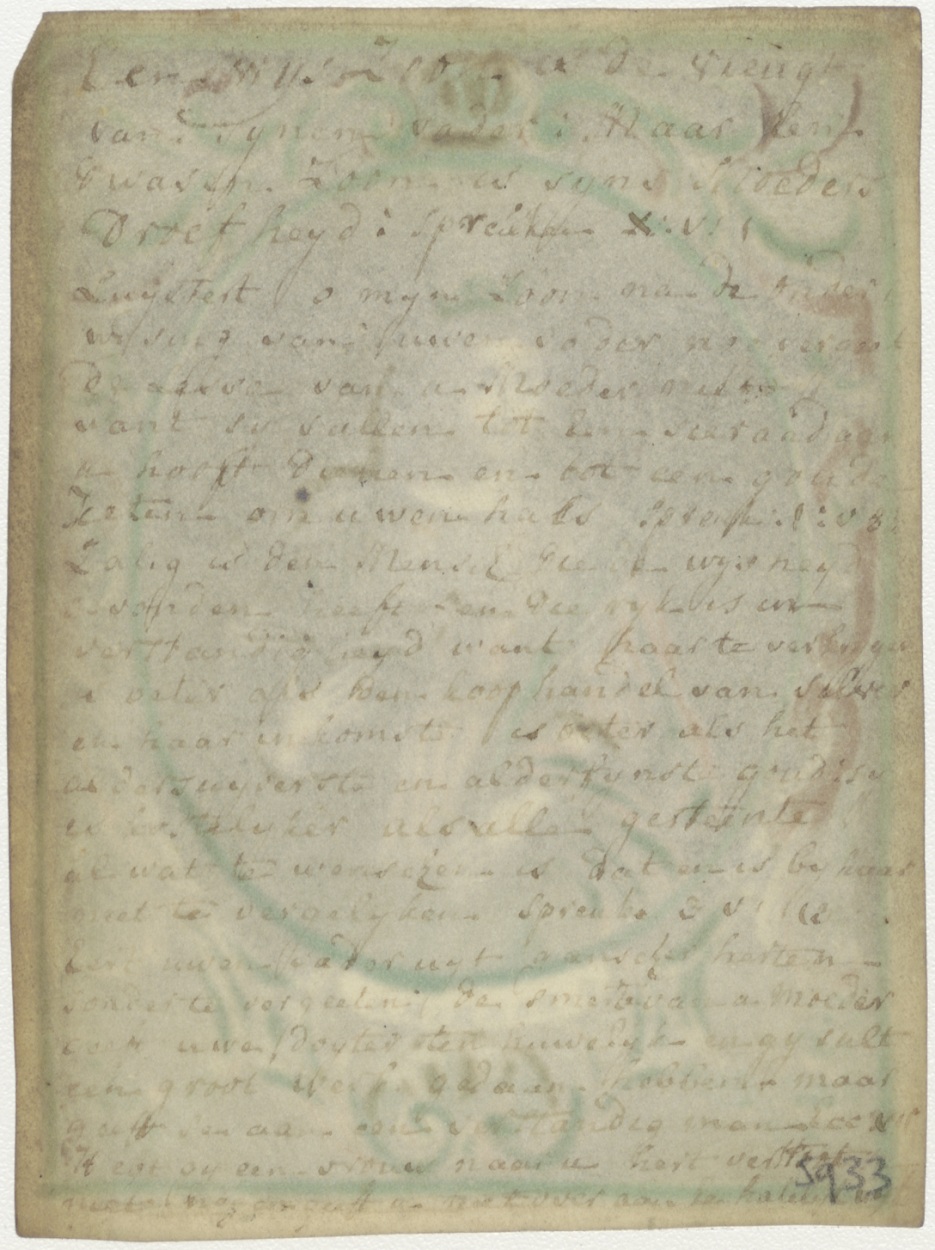 Een wys Zoon is de vreugt
van synen vader: Maar een
dwasen Zoon is syns Moeders
Droefheyd: Spreuken X: V: 1
Luystert o myn Zoon na de onder
wysing van uwen vader
van u Moeder niet
want sy sullen tot een sieraad aan
u hooft dienen en tot een goude
keten om uwen hals Spreuk: 1: V 8:
Zalig is den Mensch die de wysheyd
gevonden heeft en die ryk is in
verstandigheyd want haar te verkrygen
is beter als den koophandel van silver
en haar inkomste is beter als het
alderSuyverste en alderfynste goud: sy
is kostelyker als alle gesteente
al wat te wenschen is dat en is by haar
niet te vergelyken Spreuke 3 V:
Eert uwen Vader uyt ganscher herten
sonder te vergeten de smerte van u Moeder
geeft uwe dogter ten huwelyk en gy sult
een groot werk gedaan hebben maar
geeft se aan een verstandig man
Heeft gy een vrouw naar u hert
niet
5933